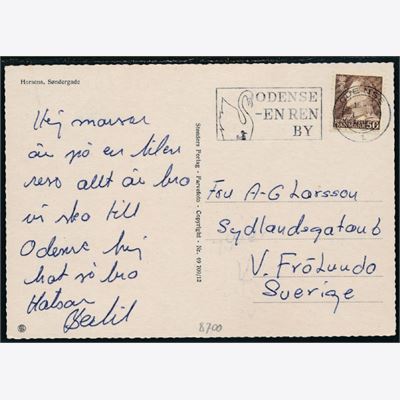 Horsens, Søndergade
Hej
är på en liten
resa allt är bra
vi ska till
Odense hej
hat så bra
Hälsar
Bertil
Stenders Forlag - Farvefoto - Copyright - Nr. 69 399/12
ODENSE
-EN REN
BY
50
Fru A-G Larsson
Sydlandsgatan 6
V. Frölunda
Sverige
8700